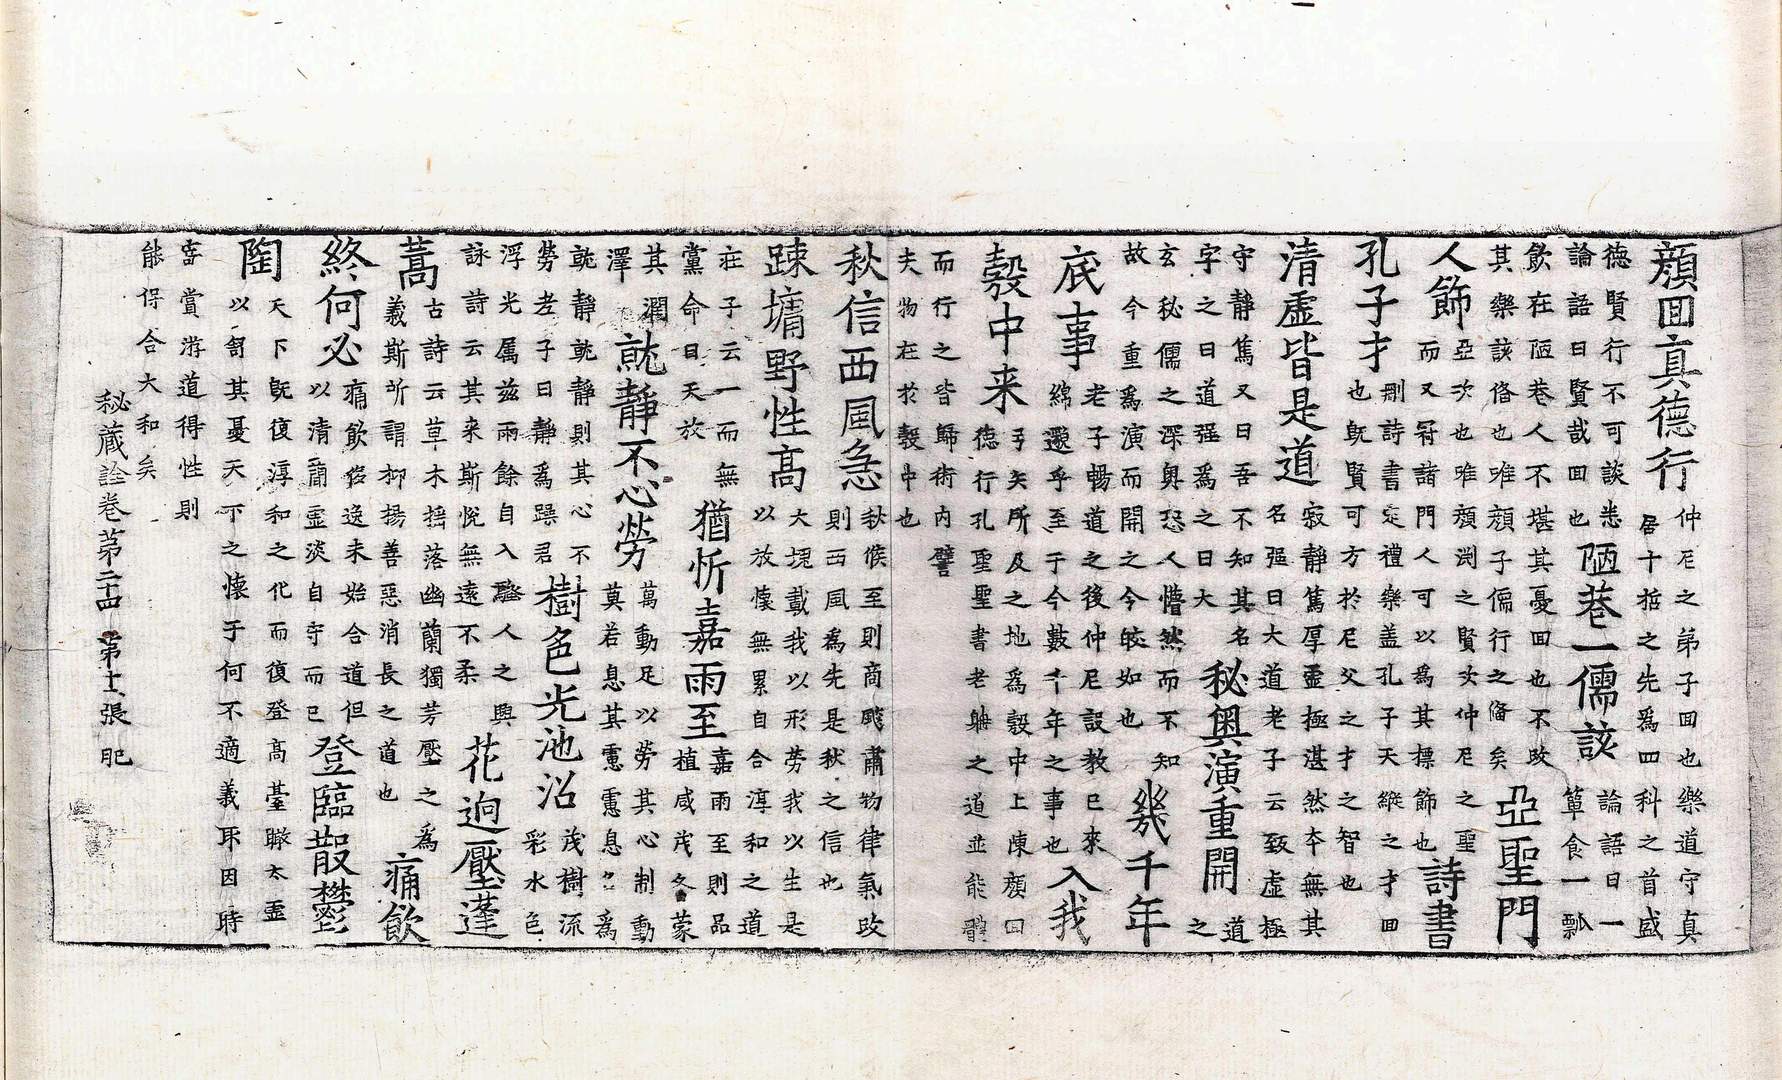 顔回真德行 仲尼之弟子回也樂道守真
居十哲之先爲四科之首盛
德賢行不可談悉
論語曰賢哉回也
陋巷一儒該 論語曰一
簞食一瓢
飲在陋巷人不堪其憂回也不改
其樂該俻也唯顔子儒行之俻矣
亞聖門
人飾 亞次也唯顔渕之賢次仲尼之聖
而又冠諸門人可以爲其標飾也
詩書
孔子才 刪詩書定禮樂盖孔子天縱之才回
也既賢可方於尼父之才之智也
清虛皆是道 寂靜篤厚靈極湛然夲無其
名強曰大道老子云致虛極
守靜篤又曰吾不知其名
字之曰道强爲之曰大
秘奥演重開 道
之
玄秘儒之深奥恐人懵然而不知
故今重爲演而開之今皎如也
幾千年
底事 老子暢道之後仲尼設教已來
綿邈乎至于今數千年之事也
入我
彀中来 弓矢所及之地爲彀中上陳顔回
德行孔聖聖書老聃之道並能體
而行之皆歸術内譬
夫物在於彀中也
秋信西風急 秋候至則商飈肅物律氣改
則西風爲先是秋之信也
踈墉野性高 大塊載我以形勞我以生是
以放懷無累自合淳和之道
莊子云一而無
黨命曰天放
猶忻嘉雨至 嘉雨至則品
植咸茂冬蒙
其潤
澤
就靜不心勞 萬動足以勞其心制動
莫若息其慮慮息々爲
就靜就靜則其心不
勞老子曰靜爲躁君
樹色光池沼 茂樹流
彩水色
浮光属兹雨餘自入騷人之興
詠詩云其来斯悅無遠不柔
花逈壓蓬
蒿 古詩云草木揺落幽蘭獨芳壓之爲
義斯所謂抑揚善惡消長之道也
痛飲
終何必 痛飲俗逸未始合道但
以清簡靈淡自守而已
登臨散鬱
陶 天下既復淳和之化而復登髙臺瞰太靈
以寫其憂天下之懷于何不適義耶因時
賞游道得性則
能保合大和矣
秘蔵詮卷第二十四 第十二張 肥